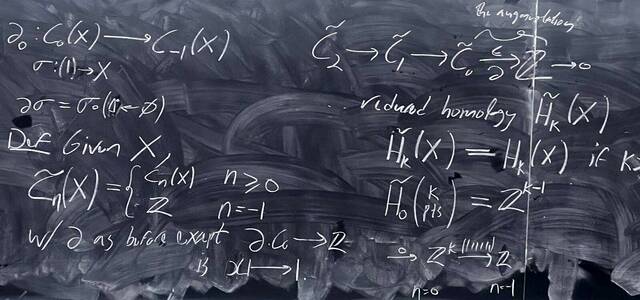 ∂₀ : C₀(X) → C₋₁(X)
σ:(1)→X
∂σ = σ∘(Δ ← ∅)
Def Given X,
C̃ₙ(X) = { Cₙ(X) n ≥ 0
ℤ n = -1
w/ ∂ as before except ∂: C₀ → ℤ
is x ↦ 1.
the augmentation
C̃₂ → C̃₁ → C̃₀ →^ε_∂ ℤ → 0
reduced homology H̃ₖ(X)
H̃ₖ(X) = Hₖ(X) if k
H̃₀(k pts) = ℤ^{k-1}
0 → ℤᵏ →^{(11111)} ℤ
n=0 n=-1